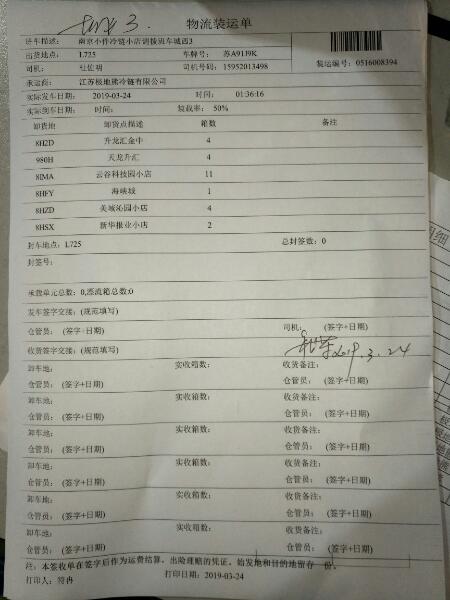 物流装运单
班车描述: 南京小件冷链小店调拨班车城西3
出货地点: L725 车牌号: 苏A91J9K
司机: 杜仕明 司机号码: 15952013498 装运编号: 0516008394
承运商: 江苏极地熊冷链有限公司
实际发车日期: 2019-03-24 时间: 01:36:16
实际到车日期: 时间: 装载率: 50%
卸货地 卸货点描述 箱数 备注
8H2D 升龙汇金中 4
980H 天龙升汇 4
8IMA 云谷科技园小店 11
8HFY 海峡城 1
8HZD 美城沁园小店 4
8HSX 新华报业小店 2
封车地点: L725 总封签数: 0
封签号:
承载单元总数: 0,漂流箱总数:0
发车签字交接: (规范填写)
仓管员: (签字+日期) 司机: (签字+日期)
收货签字交接: (规范填写) 2019.3.24
卸车地: 实收箱数: 收货备注:
仓管员: (签字+日期) 仓管员: (签字+日期)
卸车地: 实收箱数: 收货备注:
仓管员: (签字+日期) 仓管员: (签字+日期)
卸车地: 实收箱数: 收货备注:
仓管员: (签字+日期) 仓管员: (签字+日期)
卸车地: 实收箱数: 收货备注:
仓管员: (签字+日期) 仓管员: (签字+日期)
卸车地: 实收箱数: 收货备注:
仓管员: (签字+日期) 仓管员: (签字+日期)
卸车地: 实收箱数: 收货备注:
仓管员: (签字+日期) 仓管员: (签字+日期)
注: 本签收单在签字后作为运费结算、出险理赔的凭证。始发地和目的地留存 份。
打印人: 符冉 打印日期: 2019-03-24
明细